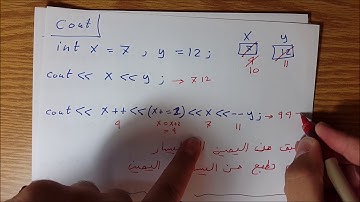 Cout
int x = 7 , y = 12 ;
x y
7 12
9 11
10
cout << x << y ; → 7 12
cout << x++ << (x+=2) << x << --y ; → 9 9
9 x=x+2 7 11
= 9
من اليمين
تطبع من اليسار اليمين